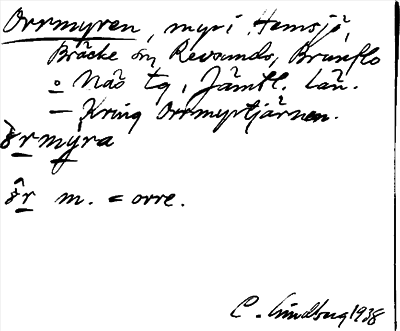 Orrmyren, myr i Hemsjö,
Bräcke sn, Revsunds, Brunflo
o Näs tg, Jämtl. län.
— Kring Orrmyrtjärnen.
ǒrmyra
ôr m. = orre.
C. Lindberg 1938